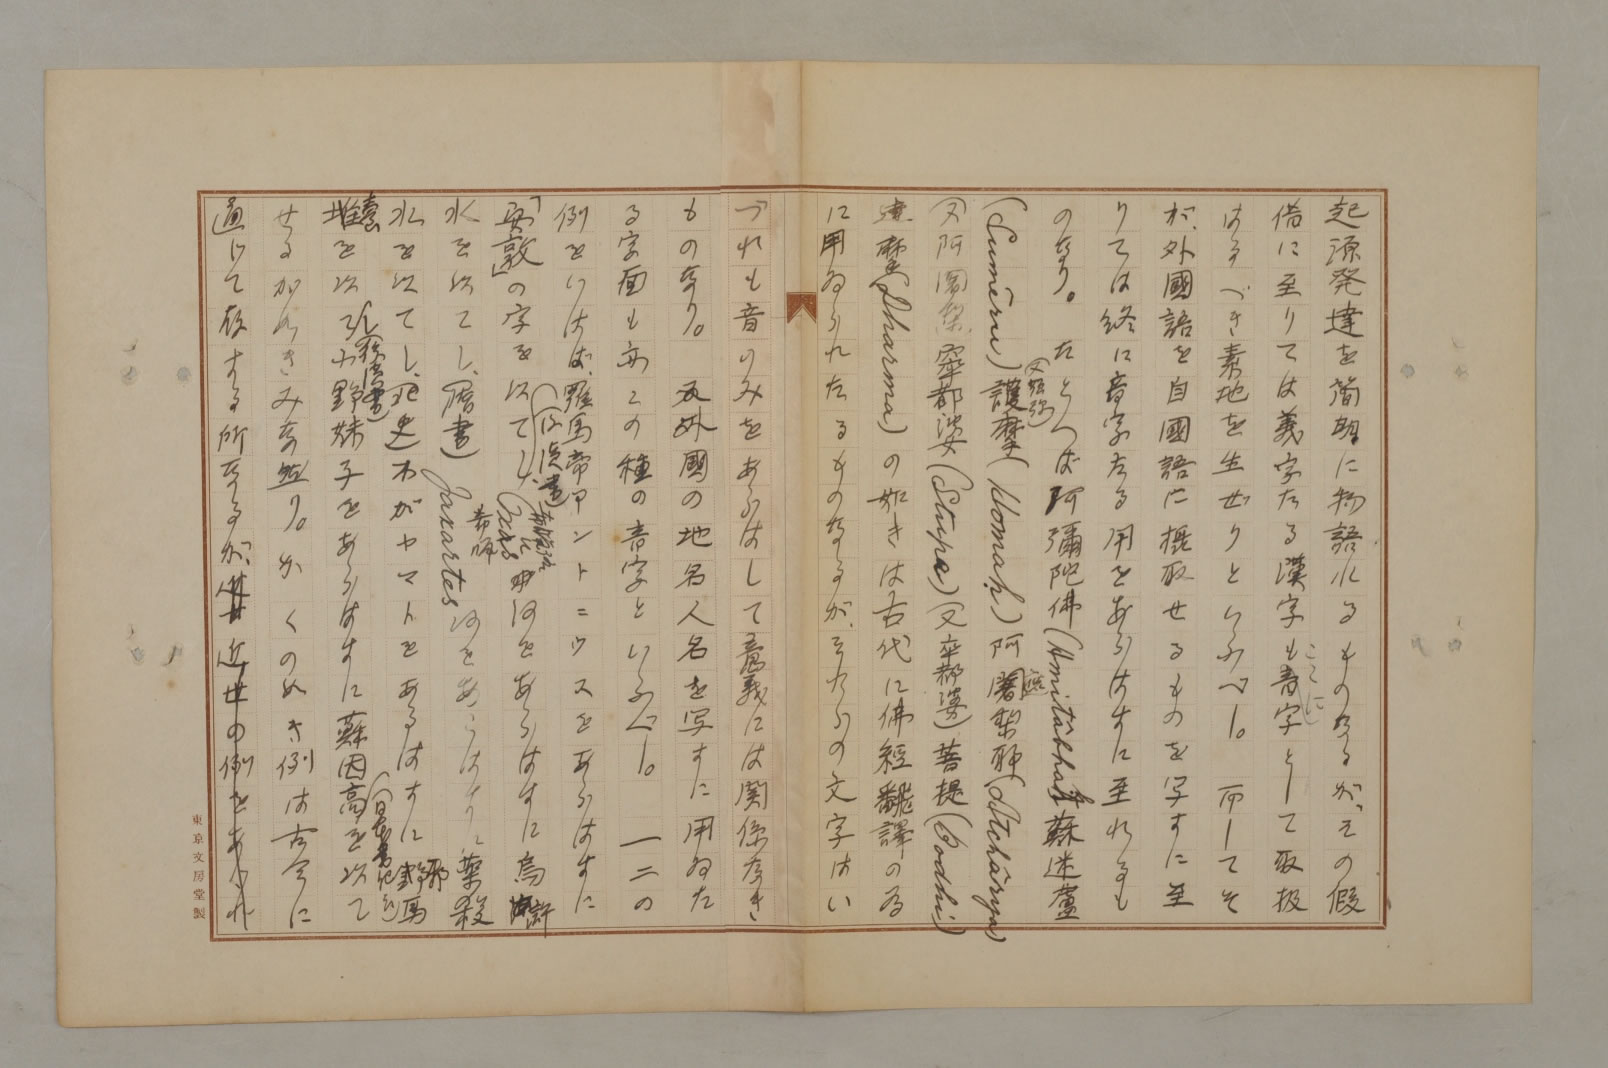 起源発達を簡明に物語れるものなるが、その假
借に至りては義字たる漢字も音字として取扱
はるべき素地を生ぜりといふべし。而してそ
が外國語を自國語に概取せるものを写すに至
りては終に音字たる用をあらはすに至れるも
のなり。たとへば阿彌陀佛(Amitâbhah)蘇迷蘆
(Sumêru)護摩(Homah)阿闍梨耶(Âtchârya)
(又阿闍梨)窣都婆(Stupa)(又卒都婆)菩提(Bodhi)
達磨(Dharma)の如きは古代に佛經飜譯の為
に用ゐられたるものなるが、それらの文字はい
づれも音のみをあらはして意義には関係なき
ものなり。又外國の地名人名を写すに用ゐた
る字面も亦この種の音字といふべし。一二の
例をいはば、羅馬帝アントニウスをあらはすに
「安敦」の字を以てし、(後漢書)Oxus河をあらはすに烏滸
水を以てし、(隋書)Jaxartes河をあらはすに薬殺
水を以てし、(北史)わがヤマトをあらはすに邪馬
臺(後漢書)を以てし、小野妹子をあらはすに蘇因高を以て
(日本書紀)
せるがごときみな然り。かくの如き例は古今に
通じて存する所なるが、近世の例をあぐれ
東京文房堂製